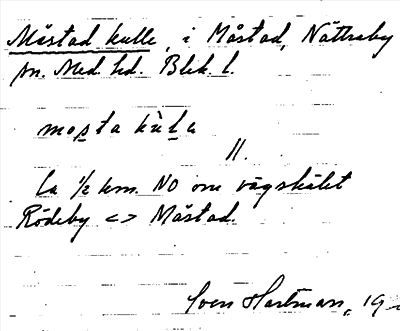 Måstad kulle, i Måstad, Nättraby
sn. Med. hd. Blek. l.
mosta kula
11.
Ca ½ km. NO om vägskälet
Rödeby <-> Måstad.
Sven Hartman, 19